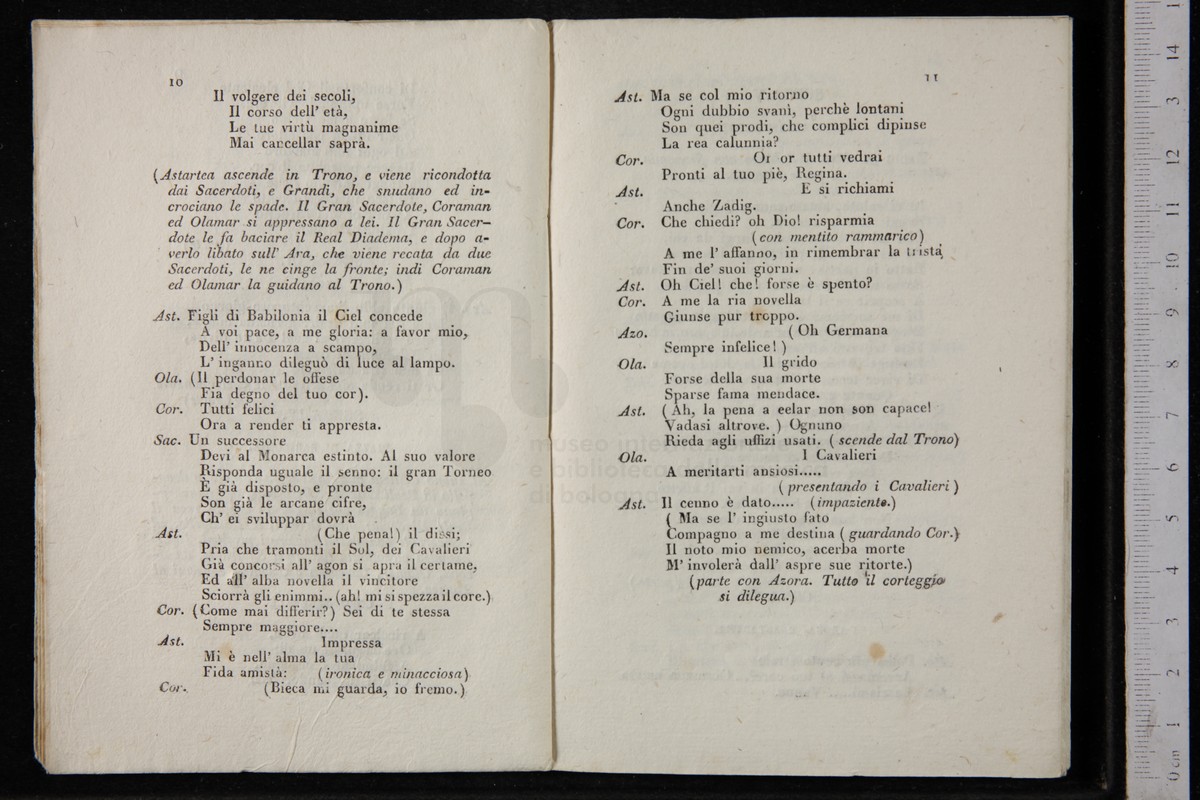 10
Il volgere dei secoli,
Il corso dell' età,
Le tue virtù magnanime
Mai cancellar saprà.
(Astartea ascende in Trono, e viene ricondotta
dai Sacerdoti, e Grandi, che snudano ed in-
crociano le spade. Il Gran Sacerdote, Coraman
ed Olamar si appressano a lei. Il Gran Sacer-
dote le fa baciare il Real Diadema, e dopo a-
verlo libato sull' Ara, che viene recata da due
Sacerdoti, le ne cinge la fronte; indi Coraman
ed Olamar la guidano al Trono.)
Ast. Figli di Babilonia il Ciel concede
A voi pace, a me gloria: a favor mio,
Dell' innocenza a scampo,
L' inganno dileguò di luce al lampo.
Ola. (Il perdonar le offese
Fia degno del tuo cor).
Cor. Tutti felici
Ora a render ti appresta.
Sac. Un successore
Devi al Monarca estinto. Al suo valore
Risponda uguale il senno: il gran Torneo
È già disposto, e pronte
Son già le arcane cifre,
Ch' ei sviluppar dovrà
Ast. (Che pena!) il dissi;
Pria che tramonti il Sol, dei Cavalieri
Già concorsi all' agon si apra il certame,
Ed all' alba novella il vincitore
Sciorrà gli enimmi.. (ah! mi si spezza il core.)
Cor. (Come mai differir?) Sei di te stessa
Sempre maggiore....
Ast. Impressa
Mi è nell' alma la tua
Fida amistà: (ironica e minacciosa)
Cor. (Bieca mi guarda, io fremo.)
11
Ast. Ma se col mio ritorno
Ogni dubbio svanì, perchè lontani
Son quei prodi, che complici dipinse
La rea calunnia?
Cor. Or or tutti vedrai
Pronti al tuo piè, Regina.
Ast. E si richiami
Anche Zadig.
Cor. Che chiedi? oh Dio! risparmia
(con mentito rammarico)
A me l' affanno, in rimembrar la trista
Fin de' suoi giorni.
Ast. Oh Ciel! che! forse è spento?
Cor. A me la ria novella
Giunse pur troppo.
Azo. (Oh Germana
Sempre infelice!)
Ola. Il grido
Forse della sua morte
Sparse fama mendace.
Ast. (Ah, la pena a celar non son capace!
Vadasi altrove.) Ognuno
Rieda agli uffizi usati. (scende dal Trono)
Ola. I Cavalieri
A meritarti ansiosi.....
(presentando i Cavalieri)
Ast. Il cenno è dato..... (impaziente.)
( Ma se l' ingiusto fato
Compagno a me destina (guardando Cor.)
Il noto mio nemico, acerba morte
M' involerà dall' aspre sue ritorte.)
(parte con Azora. Tutto il corteggio
si dilegua.)
museo inter
e biblioteca
di bologna
0 cm 1 2 3 4 5 6 7 8 9 10 11 12 13 14